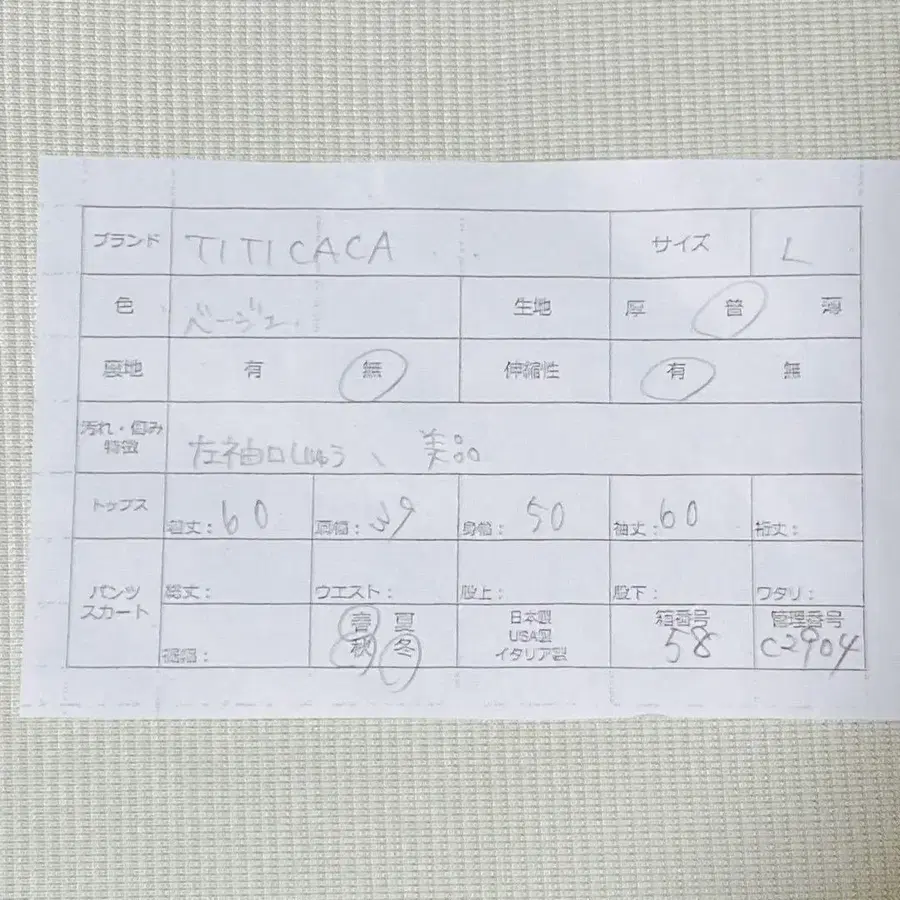 ブランド TITICACA サイズ L
色 ベージュ 生地 厚 普 薄
裏地 有 無 伸縮性 有 無
汚れ・傷み
特徴 左袖口しゅう、美品
トップス 着丈：60 肩幅：39 身幅：50 袖丈：60 裄丈：
パンツ
スカート 総丈： ウエスト： 股上： 股下： ワタリ：
裾幅： 春 夏 日本製 箱番号 管理番号
秋 冬 USA製 58 C2904
イタリア製